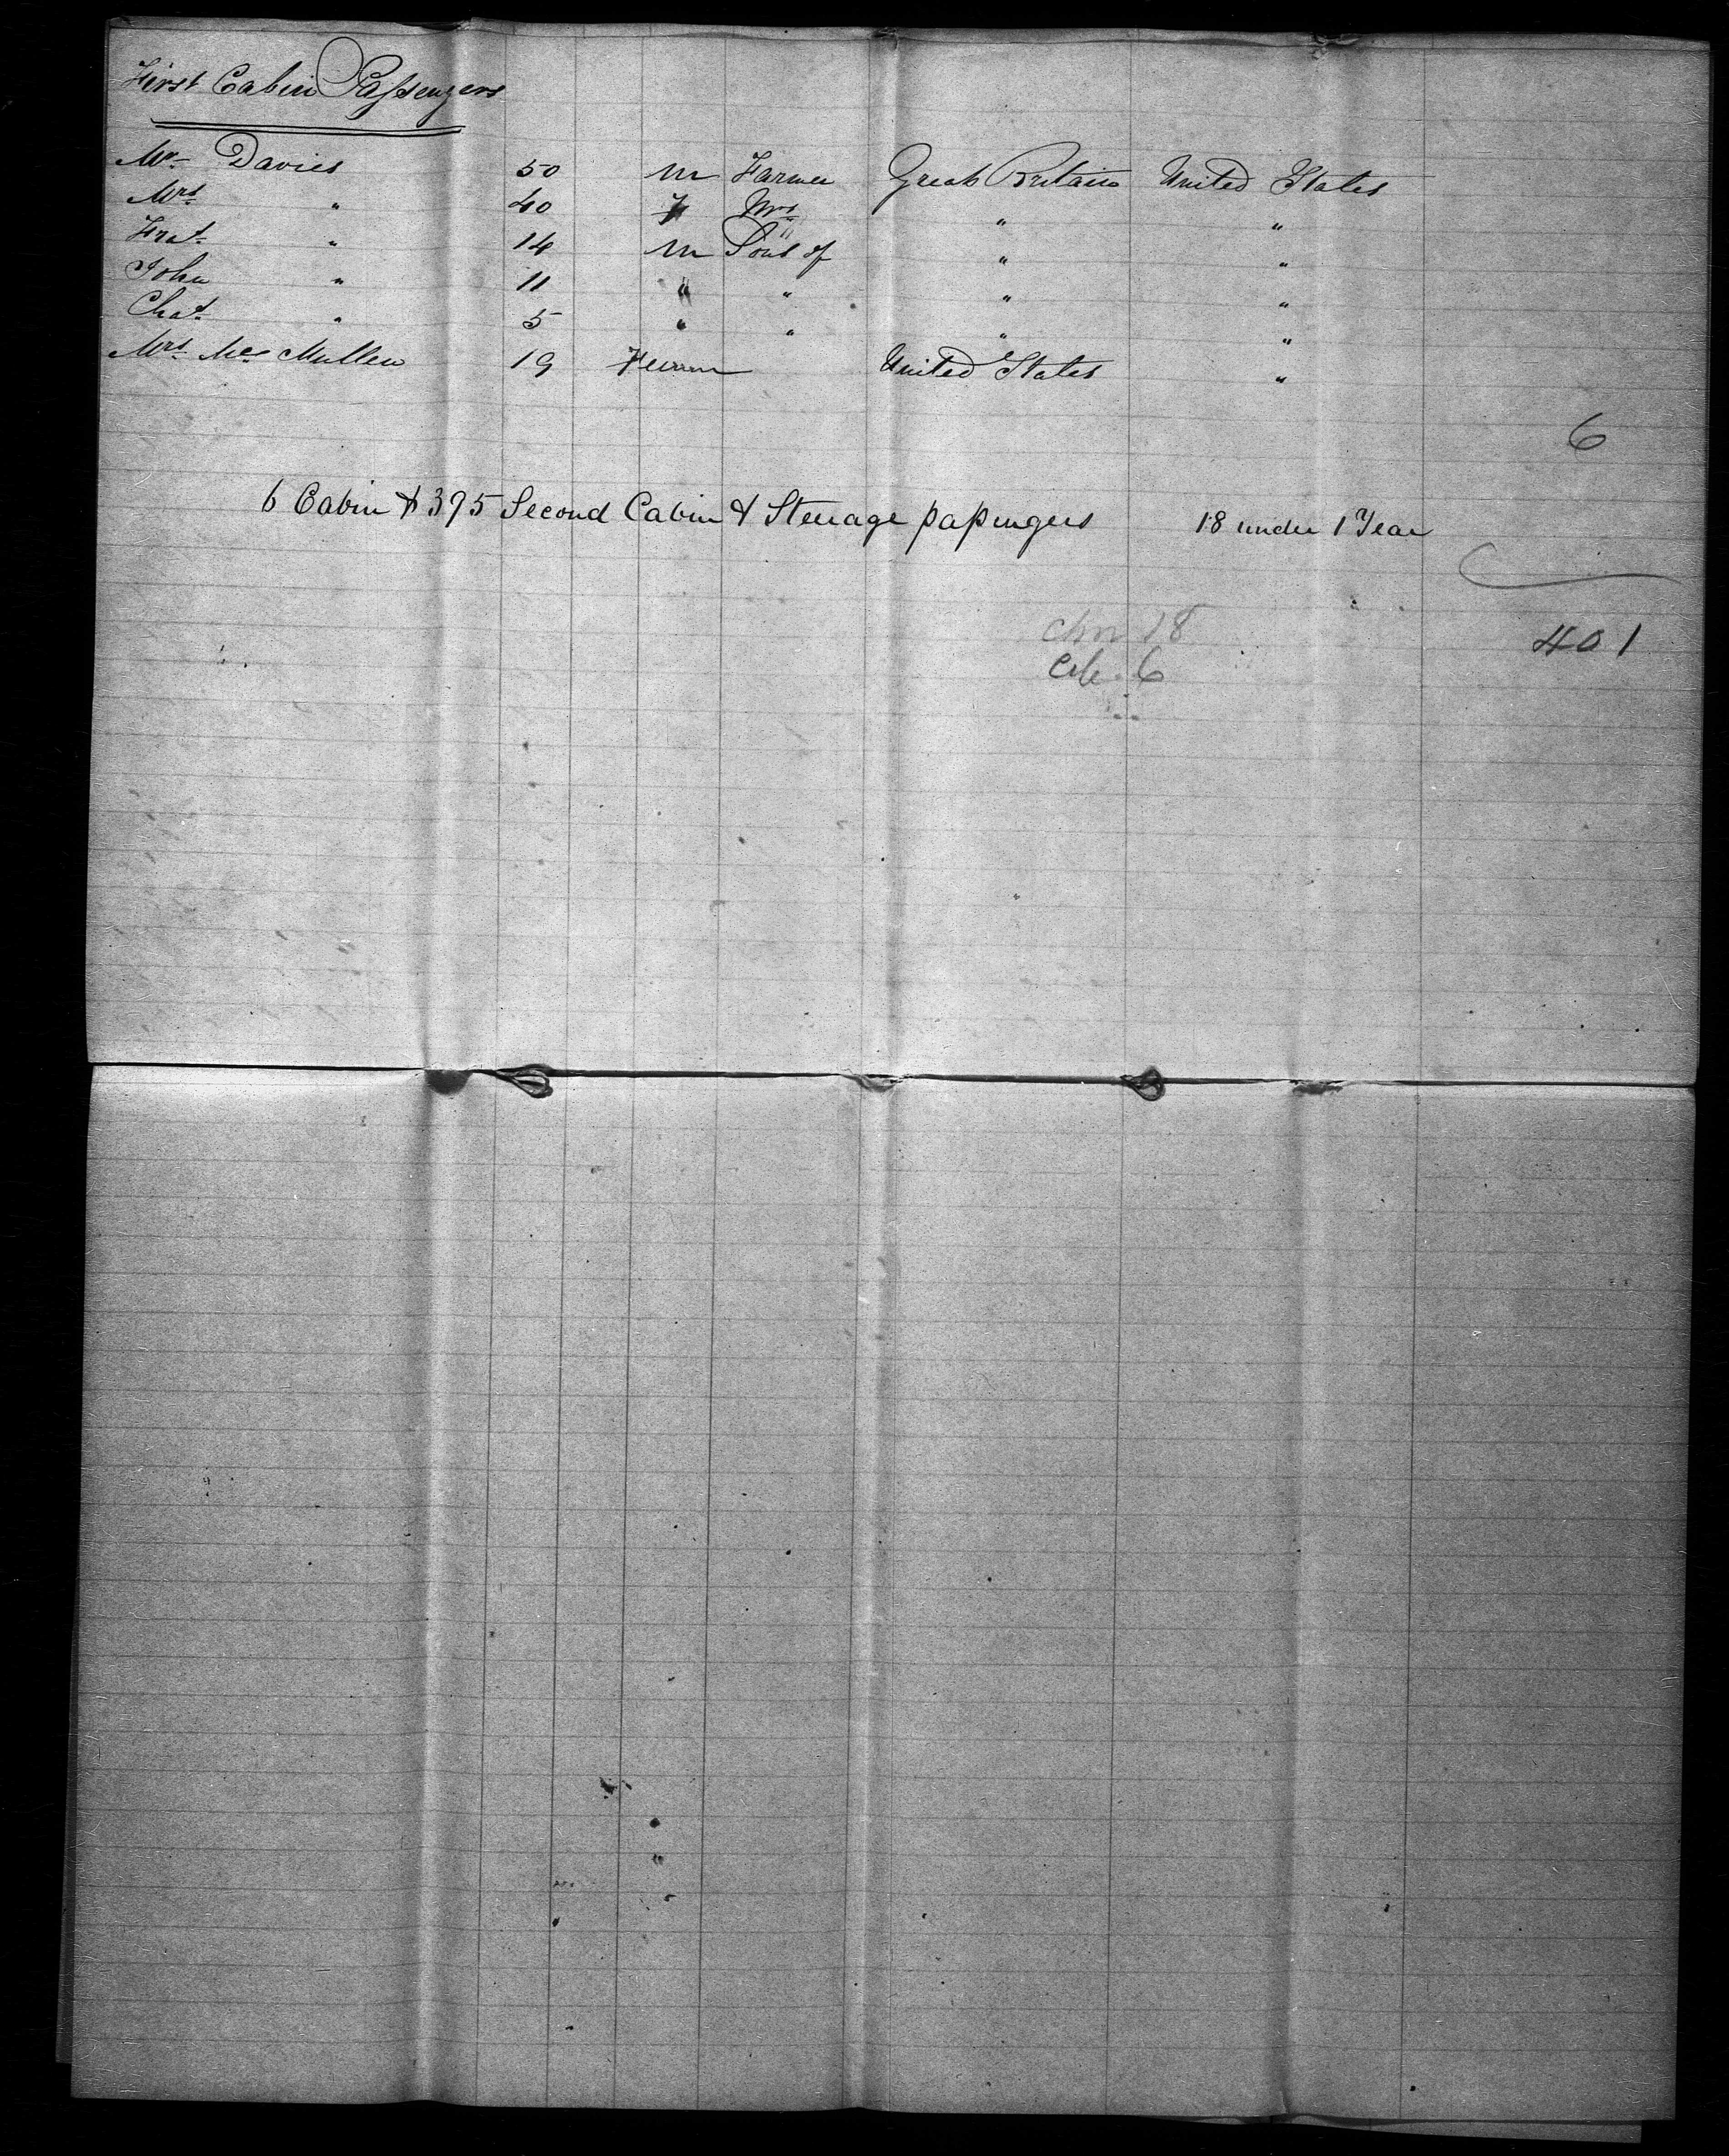 First Cabin Passengers
Mr Davies 50 M Farmer Great Britain United States
Mrs " 40 F Mrs " "
" 14 M Sons of " "
John " 11 " " " "
Chas " 5 " " " "
Mrs Mc Mullen 19 United States "
6
6 Cabin & 395 Second Cabin & Steerage passengers 18 under 1 Year
18
401
6